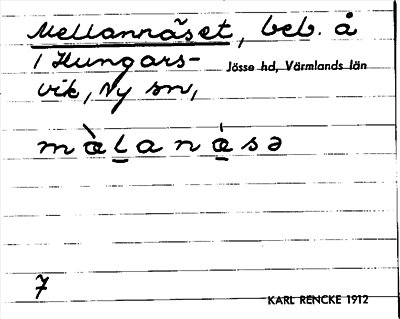 Mellannäset, beb. å
1 Hungars-
vik, Ny sn, Jösse hd, Värmlands län
mὰl̠anά̠sə
7
KARL RENCKE 1912